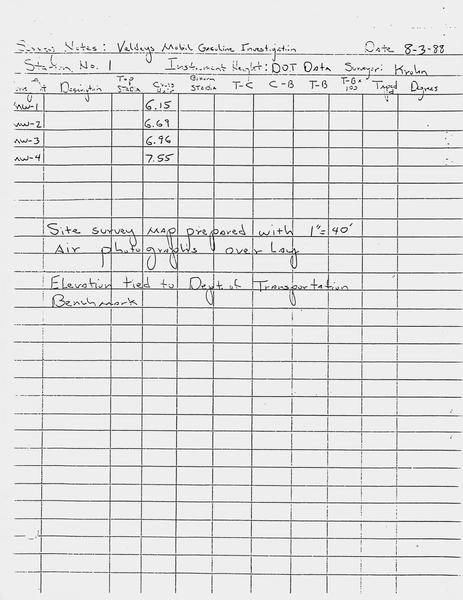 Survey Notes: Valdeys Mobil Gasoline Investigation Date 8-3-88
Station No. 1 Instrument Height: DOT Data Surveyor: Krohn
Designation Top Stadia Cross Hair Bottom Stadia T-C C-B T-B T-B x 100 Taped Degrees
MW-1 6.15
MW-2 6.69
MW-3 6.96
MW-4 7.55
Site survey map prepared with 1"= 40'
Air photographs over lay
Elevation tied to Dept of Transportation
Benchmark